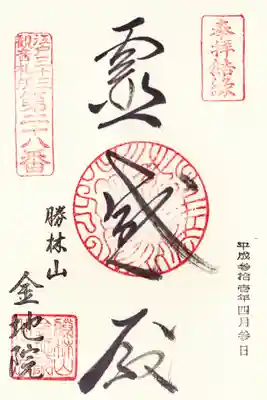 奉拝結縁
平成参拾壱年四月参日
靈感殿
江戸三十三
観音札所
第二十八番
勝林山
金地院